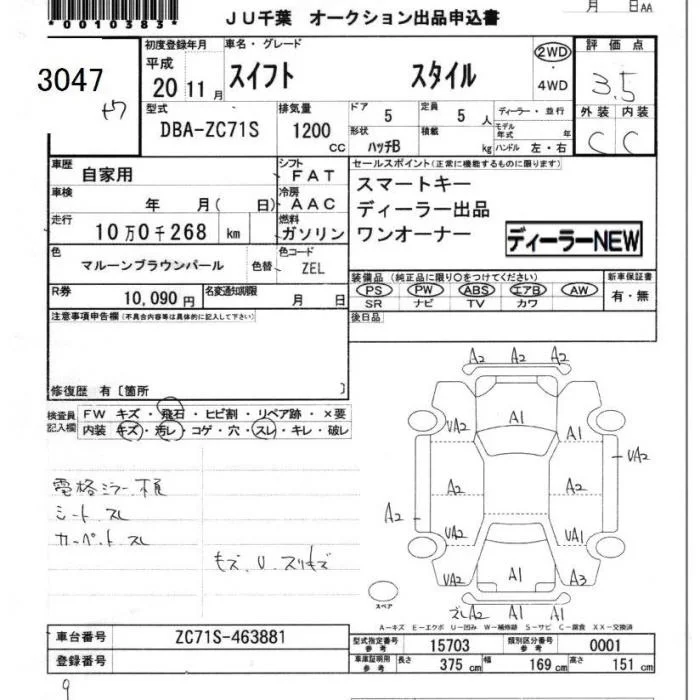 *0010383*
JU千葉 オークション出品申込書
月 日AA
3047
初度登録年月
平成
20 11月
車名・グレード
スイフト スタイル
2WD
・
4WD
評価点
3.5
外装 内装
C C
型式
DBA-ZC71S
排気量
1200
cc
ドア 5
定員 5 人
ディーラー・並行
形状 ハッチB
積載 kg
モデル年式 年
ハンドル 左・右
車歴 自家用
シフト FAT
車検 年 月( 日)
冷房 AAC
走行 10万0千268 km
燃料 ガソリン
セールスポイント(正常に機能するものに限ります)
スマートキー
ディーラー出品
ワンオーナー
ディーラーNEW
色 マルーンブラウンパール 色替
色コード ZEL
R券 10,090円
名変通知期限 月 日
装備品(純正品に限り○をつけてください)
PS PW ABS エアB AW
SR ナビ TV カワ
新車保証書
有・無
注意事項申告欄(不具合内容等は具体的に記入して下さい)
後日品
修復歴 有〔箇所 〕
検査員記入欄
FW キズ・飛石・ヒビ割・リペア跡・×要
内装 キズ・汚レ・コゲ・穴・スレ・キレ・破レ
電格ミラー不良
シート スレ
カーペット スレ
キズ、U、スリキズ
A2 A2 A2
VA2 A1 A1
VA2
A2 A2
A2
VA2 VA1
VA2 A1 A3
ズレA2 A1 A1
スペア
A-キズ E-エクボ U-凹み W-補修跡 S-サビ C-腐食 XX-交換済
車台番号 ZC71S-463881
登録番号
型式指定番号 参考 15703
類別区分番号 参考 0001
車庫証明用 参考 長さ 375 cm 幅 169 cm 高さ 151 cm
9